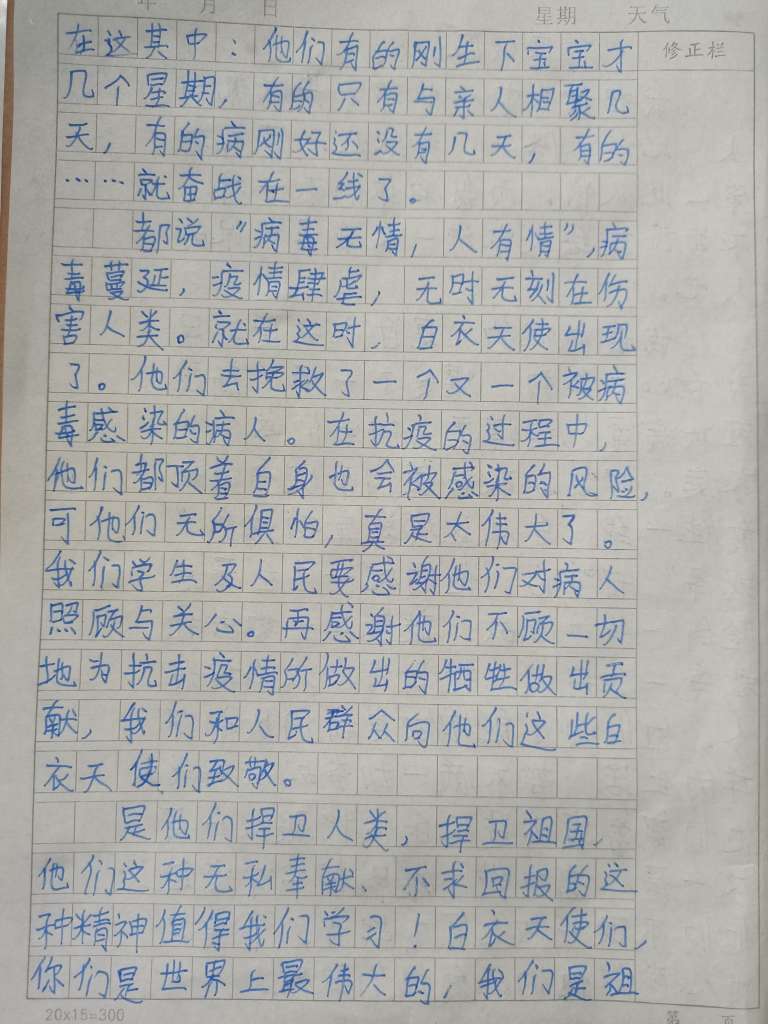 年 月 日 星期 天气
修正栏
在这其中：他们有的刚生下宝宝才
几个星期，有的只有与亲人相聚几
天，有的病刚好还没有几天，有的
……就奋战在一线了。
都说“病毒无情，人有情”，病
毒蔓延，疫情肆虐，无时无刻在伤
害人类。就在这时，白衣天使出现
了。他们去挽救了一个又一个被病
毒感染的病人。在抗疫的过程中，
他们都顶着自身也会被感染的风险，
可他们无所俱怕，真是太伟大了。
我们学生及人民要感谢他们对病人
照顾与关心。再感谢他们不顾一切
地为抗击疫情所做出的牺牲做出贡
献，我们和人民群众向他们这些白
衣天使们致敬。
是他们捍卫人类，捍卫祖国，
他们这种无私奉献、不求回报的这
种精神值得我们学习！白衣天使们，
你们是世界上最伟大的，我们是祖
20x15=300
第 页